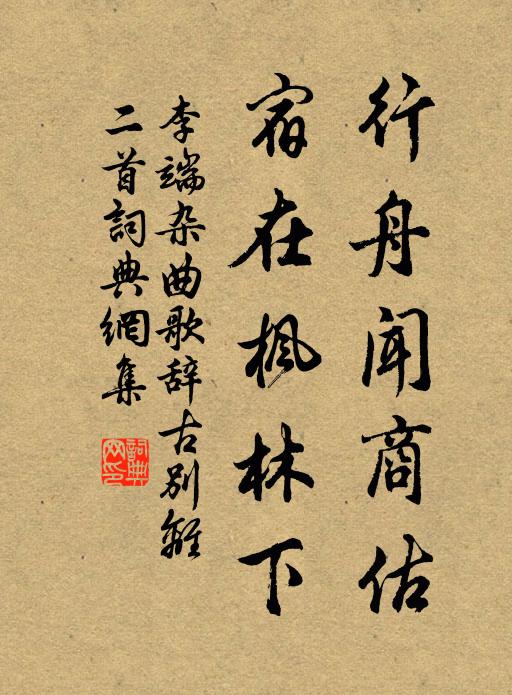 行舟闻商估
宿在枫林下
李端杂曲歌辞古别离
二首词典网集
词典网印